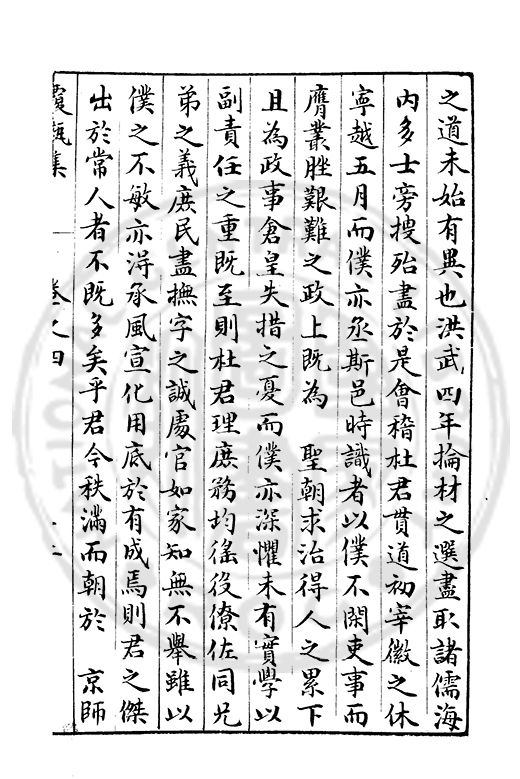 之道未始有異也洪武四年掄材之選盡取諸儒海
內多士旁搜殆盡於是會稽杜君貫道初宰徽之休
寧越五月而僕亦丞斯邑時識者以僕不閑吏事而
膺叢脞艱難之政上既為 聖朝求治得人之累下
且為政事倉皇失措之憂而僕亦深懼未有實學以
副責任之重既至則杜君理庶務均徭役僚佐同兄
弟之義庶民盡撫字之誠處官如家知無不舉雖以
僕之不敏亦得承風宣化用底於有成焉則君之傑
出於常人者不既多矣乎君今秩滿而朝於 京師
集 卷之四